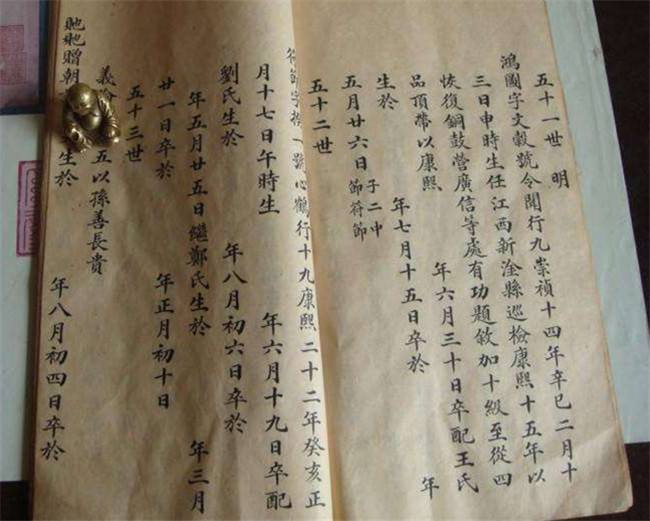 五十一世 明
鴻國字文毅號令聞行九崇禎十四年辛巳二月十
三日申時生任江西新淦縣巡檢康熙十五年以
恢復銅鼓營廣信等處有功題敘加十級至從四
品頂帶以康熙 年六月三十日卒配王氏
生於 年七月十五日卒於 年
五月廿六日 子二申 節符節
五十二世
符節字 一號心鶴行十九康熙二十二年癸亥正
月十七日午時生 年六月十九日卒配
劉氏生於 年八月初六日卒於
年五月廿五日繼鄭氏生於 年三月
廿一日卒於 年正月初十日
五十三世
義 五以孫善長貴
馳馳贈朝 生於 年八月初四日卒於